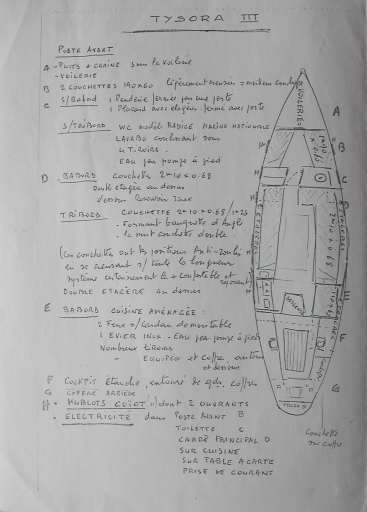 TYSORA III
POSTE AVANT
A - PUITS A CHAINE sous la voilerie
- VOILERIE
B 2 COUCHETTES 190X60 légèrement
C S/Babord 1 Penderie fermée par une porte
1 Placard avec etagères fermé avec porte
S/TRIBORD WC modèle RADICE MARINE NATIONALE
LAVABO coulissant sous
4 TIROIRS.
EAU par pompe à pied
D BABORD Couchette 2m10 X 0.68
etagère au dessus
dessous
TRIBORD COUCHETTE 2m10 X 0.68/1m23
- Formant banquette d'Angle
- la nuit couchette double
(Les couchettes ont positions Anti-roulis
en se creusant s/ toute la longueur
système certainement le + confortable et reposant
DOUBLE ETAGERE au dessus
E BABORD CUISINE AMÉNAGÉE :
2 Feux s/Cardan démontable
1 EVIER INOX - EAU par pompe à pied
Nombreux tiroirs
- EQUIPETS et coffres autour
et dessous
F COCKPIT étanche, entouré de coffres
G COFFRE ARRIERE
H - HUBLOTS GOÏOT dont 2 OUVRANTS
- ELECTRICITÉ dans POSTE AVANT B
TOILETTE C
CARRÉ PRINCIPAL D
SUR CUISINE
SUR TABLE A CARTE
PRISE DE COURANT
VOILERIE
A
B
C
D
E
F
G
2m10 X 0.68
Couchette
ou coffre